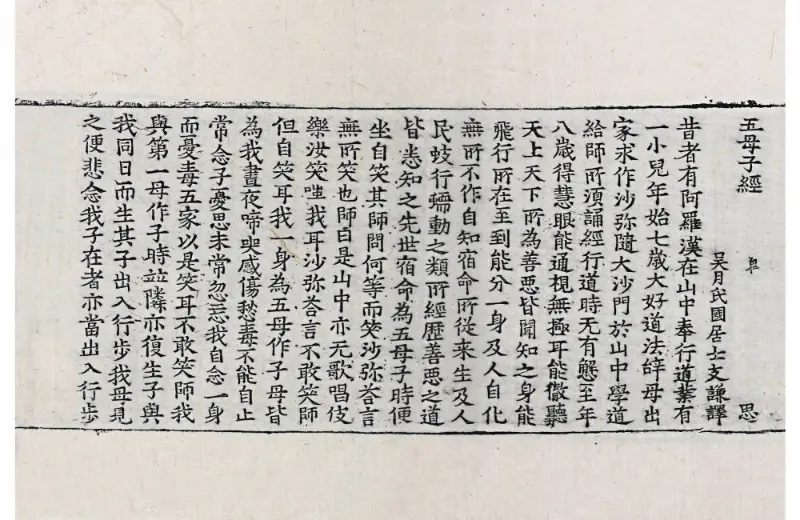 五母子經 思
吴月氏國居士支謙譯
昔者有阿羅漢在山中奉行道業有
一小兒年始七歲大好道法辝母出
家求作沙弥隨大沙門於山中學道
給師所須誦經行道時无有懈至年
八歲得慧眼能通視無極耳能徹聽
天上天下所為善惡皆聞知之身能
飛行所在至到能分一身及人自化
無所不作自知宿命所從来生及人
民蚑行蠕動之類所經歷善惡之道
皆悉知之先世宿命為五母子時便
坐自笑其師問何等而笑沙弥荅言
無所笑也師曰是山中亦无歌唱伎
樂汝笑我耳沙弥荅言不敢笑師
但自笑耳我一身為五母作子母皆
為我晝夜啼哭感傷愁毒不能自止
常念子憂思未常忽忘我自念一身
而憂毒五家以是笑耳不敢笑師我
與第一母作子時竝隣亦復生子與
我同日而生其子出入行步我母見
之便悲念我子在者亦當出入行步